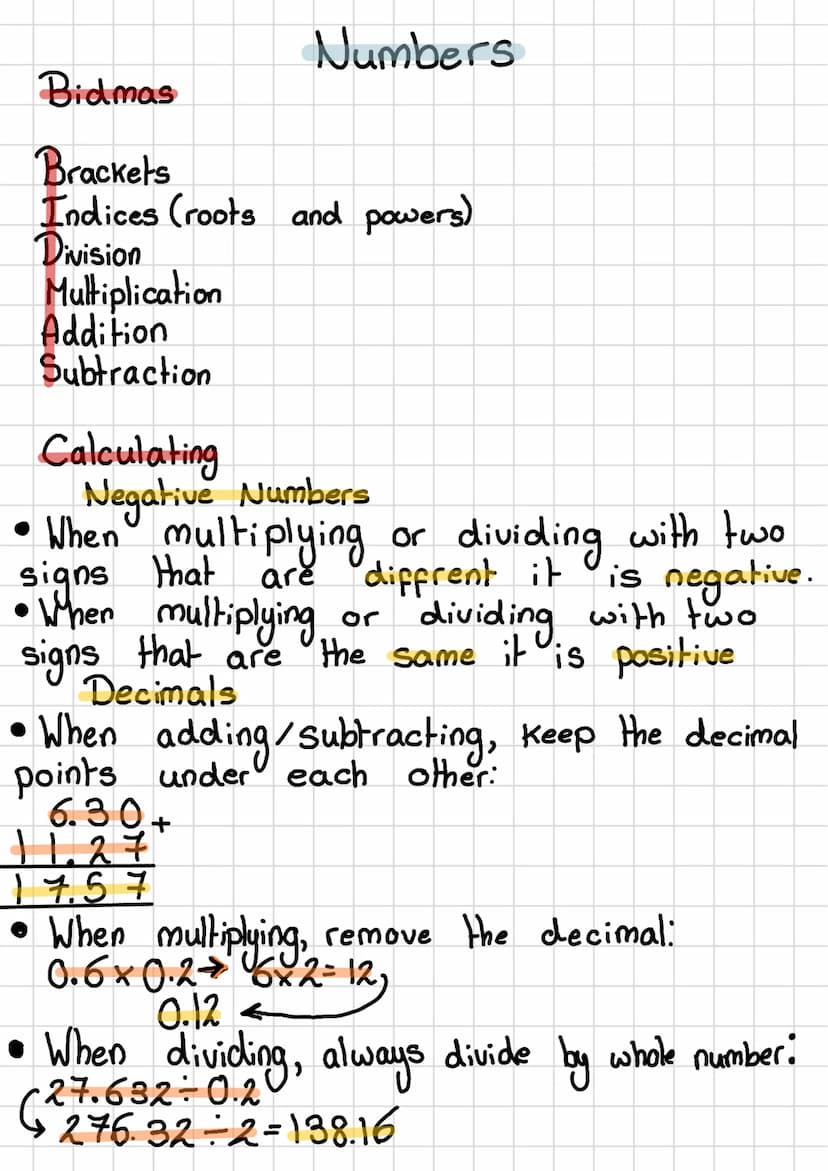 Numbers
Bidmas
Brackets
Indices (roots and powers)
Division
Multiplication
Addition
Subtraction
Calculating
Negative Numbers
• When multiplying or dividing with two
signs that are diffrent it is negative.
• When multiplying or dividing with two
signs that are the same it is positive
Decimals
• When adding/subtracting, keep the decimal
points under each other:
6.30 +
11.27
17.57
• When multiplying, remove the decimal:
0.6 × 0.2 → 6×2=12
0.12
• When dividing, always divide by whole number:
27.632 ÷ 0.2
276.32 ÷ 2 = 138.16